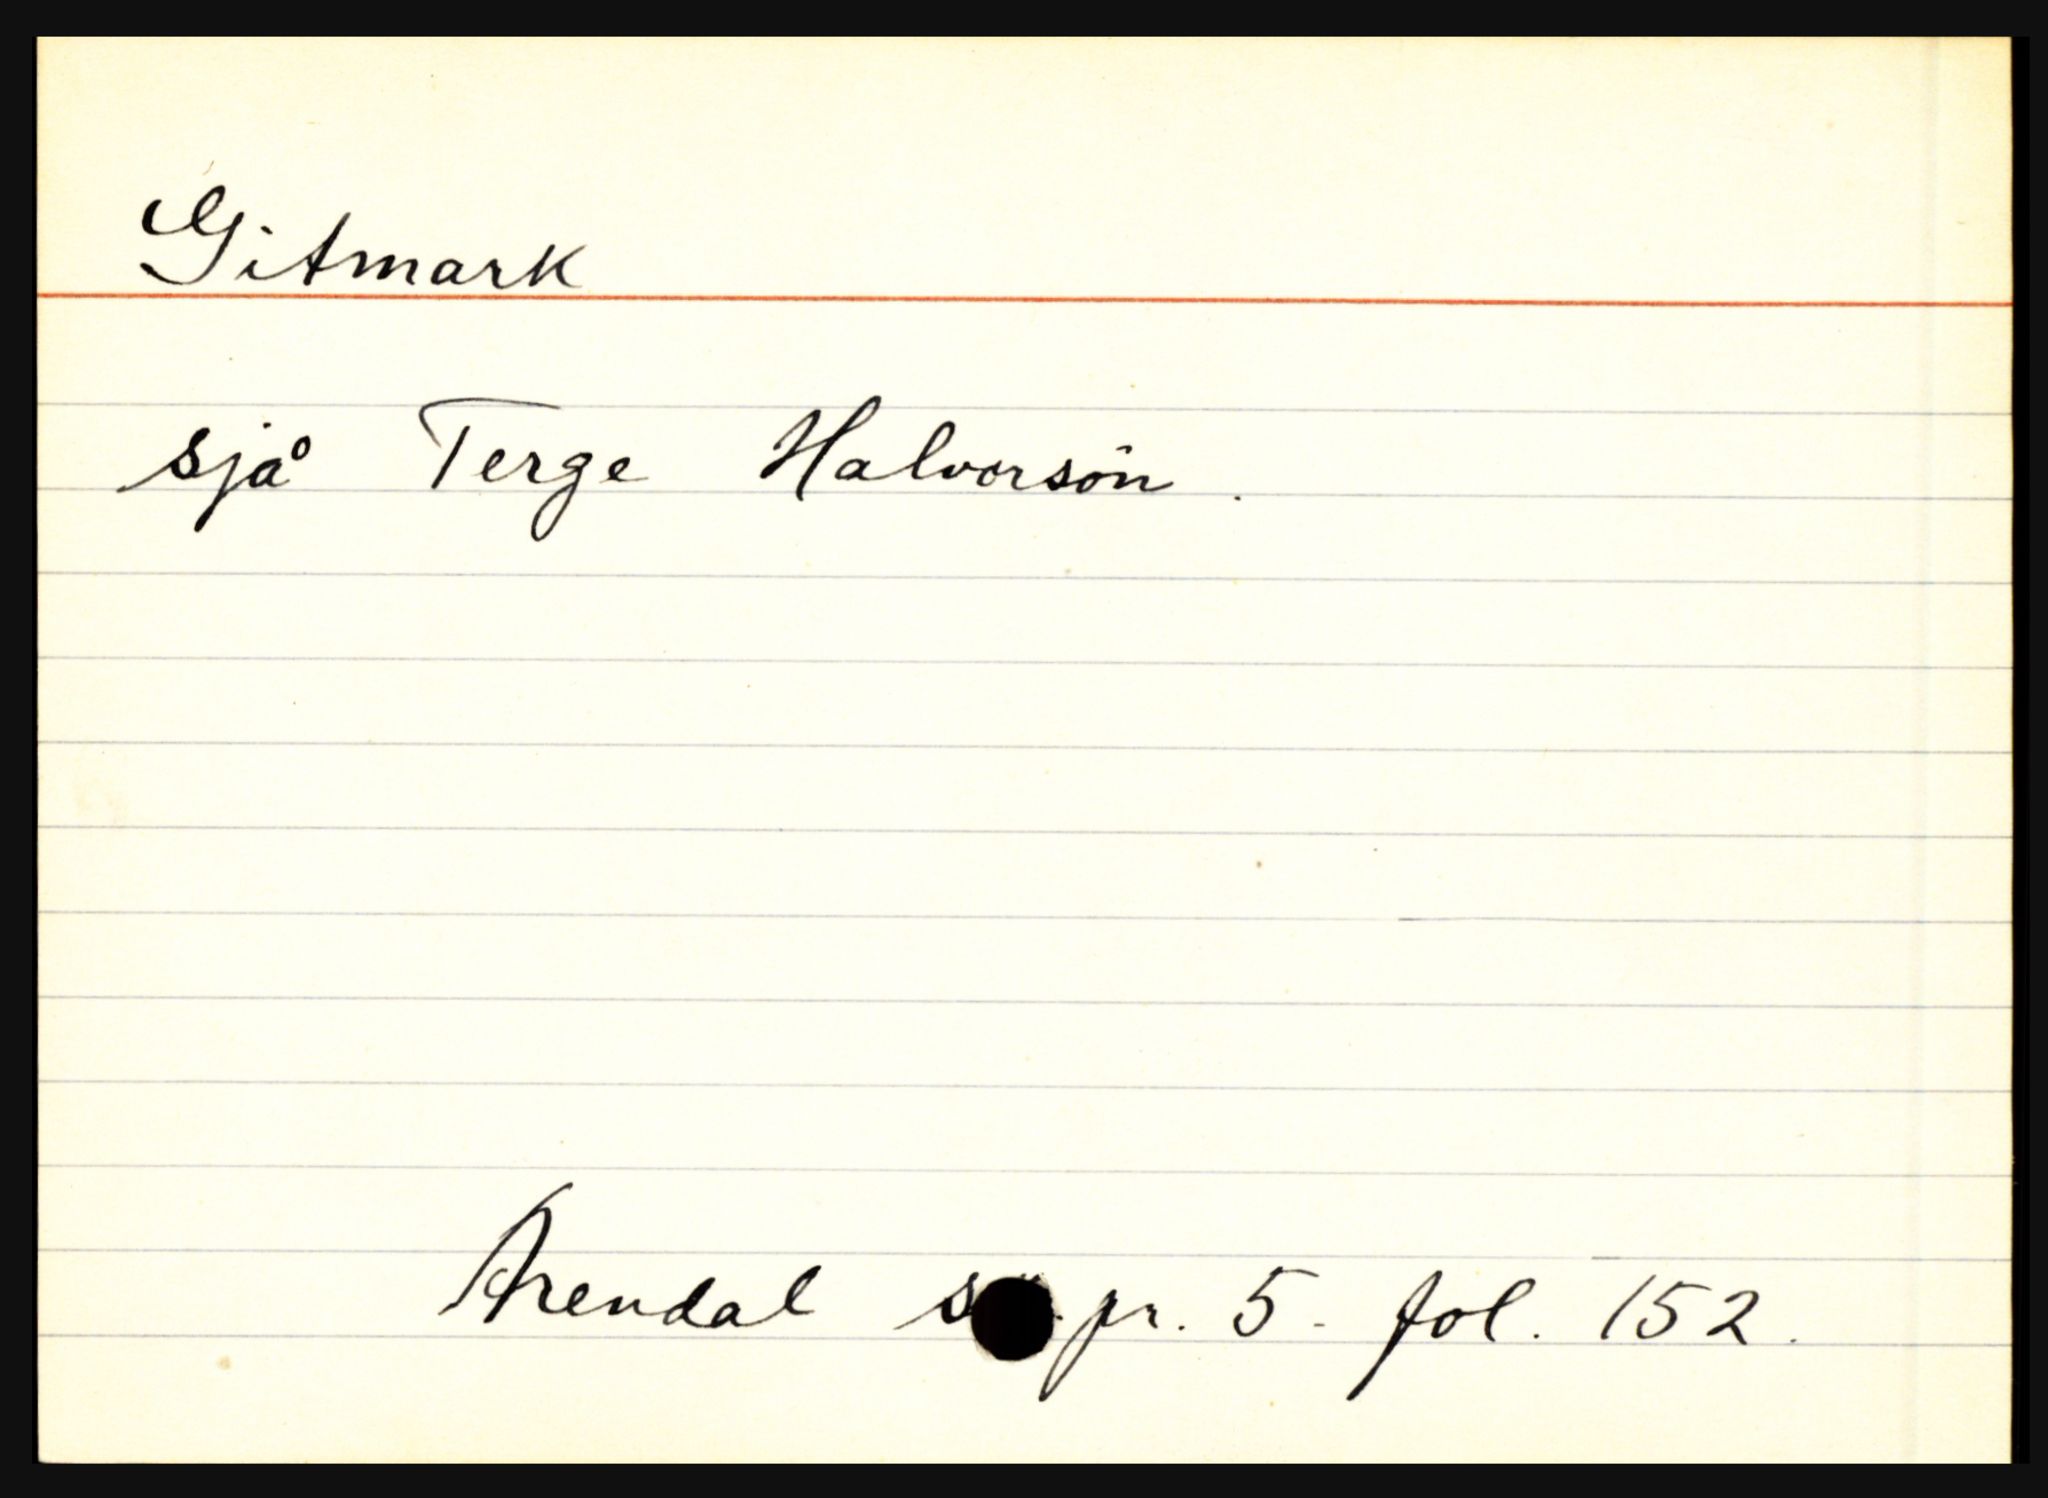 Gitmark
sjå Terge Halvorsön.
Arendal pr. 5. fol. 152.